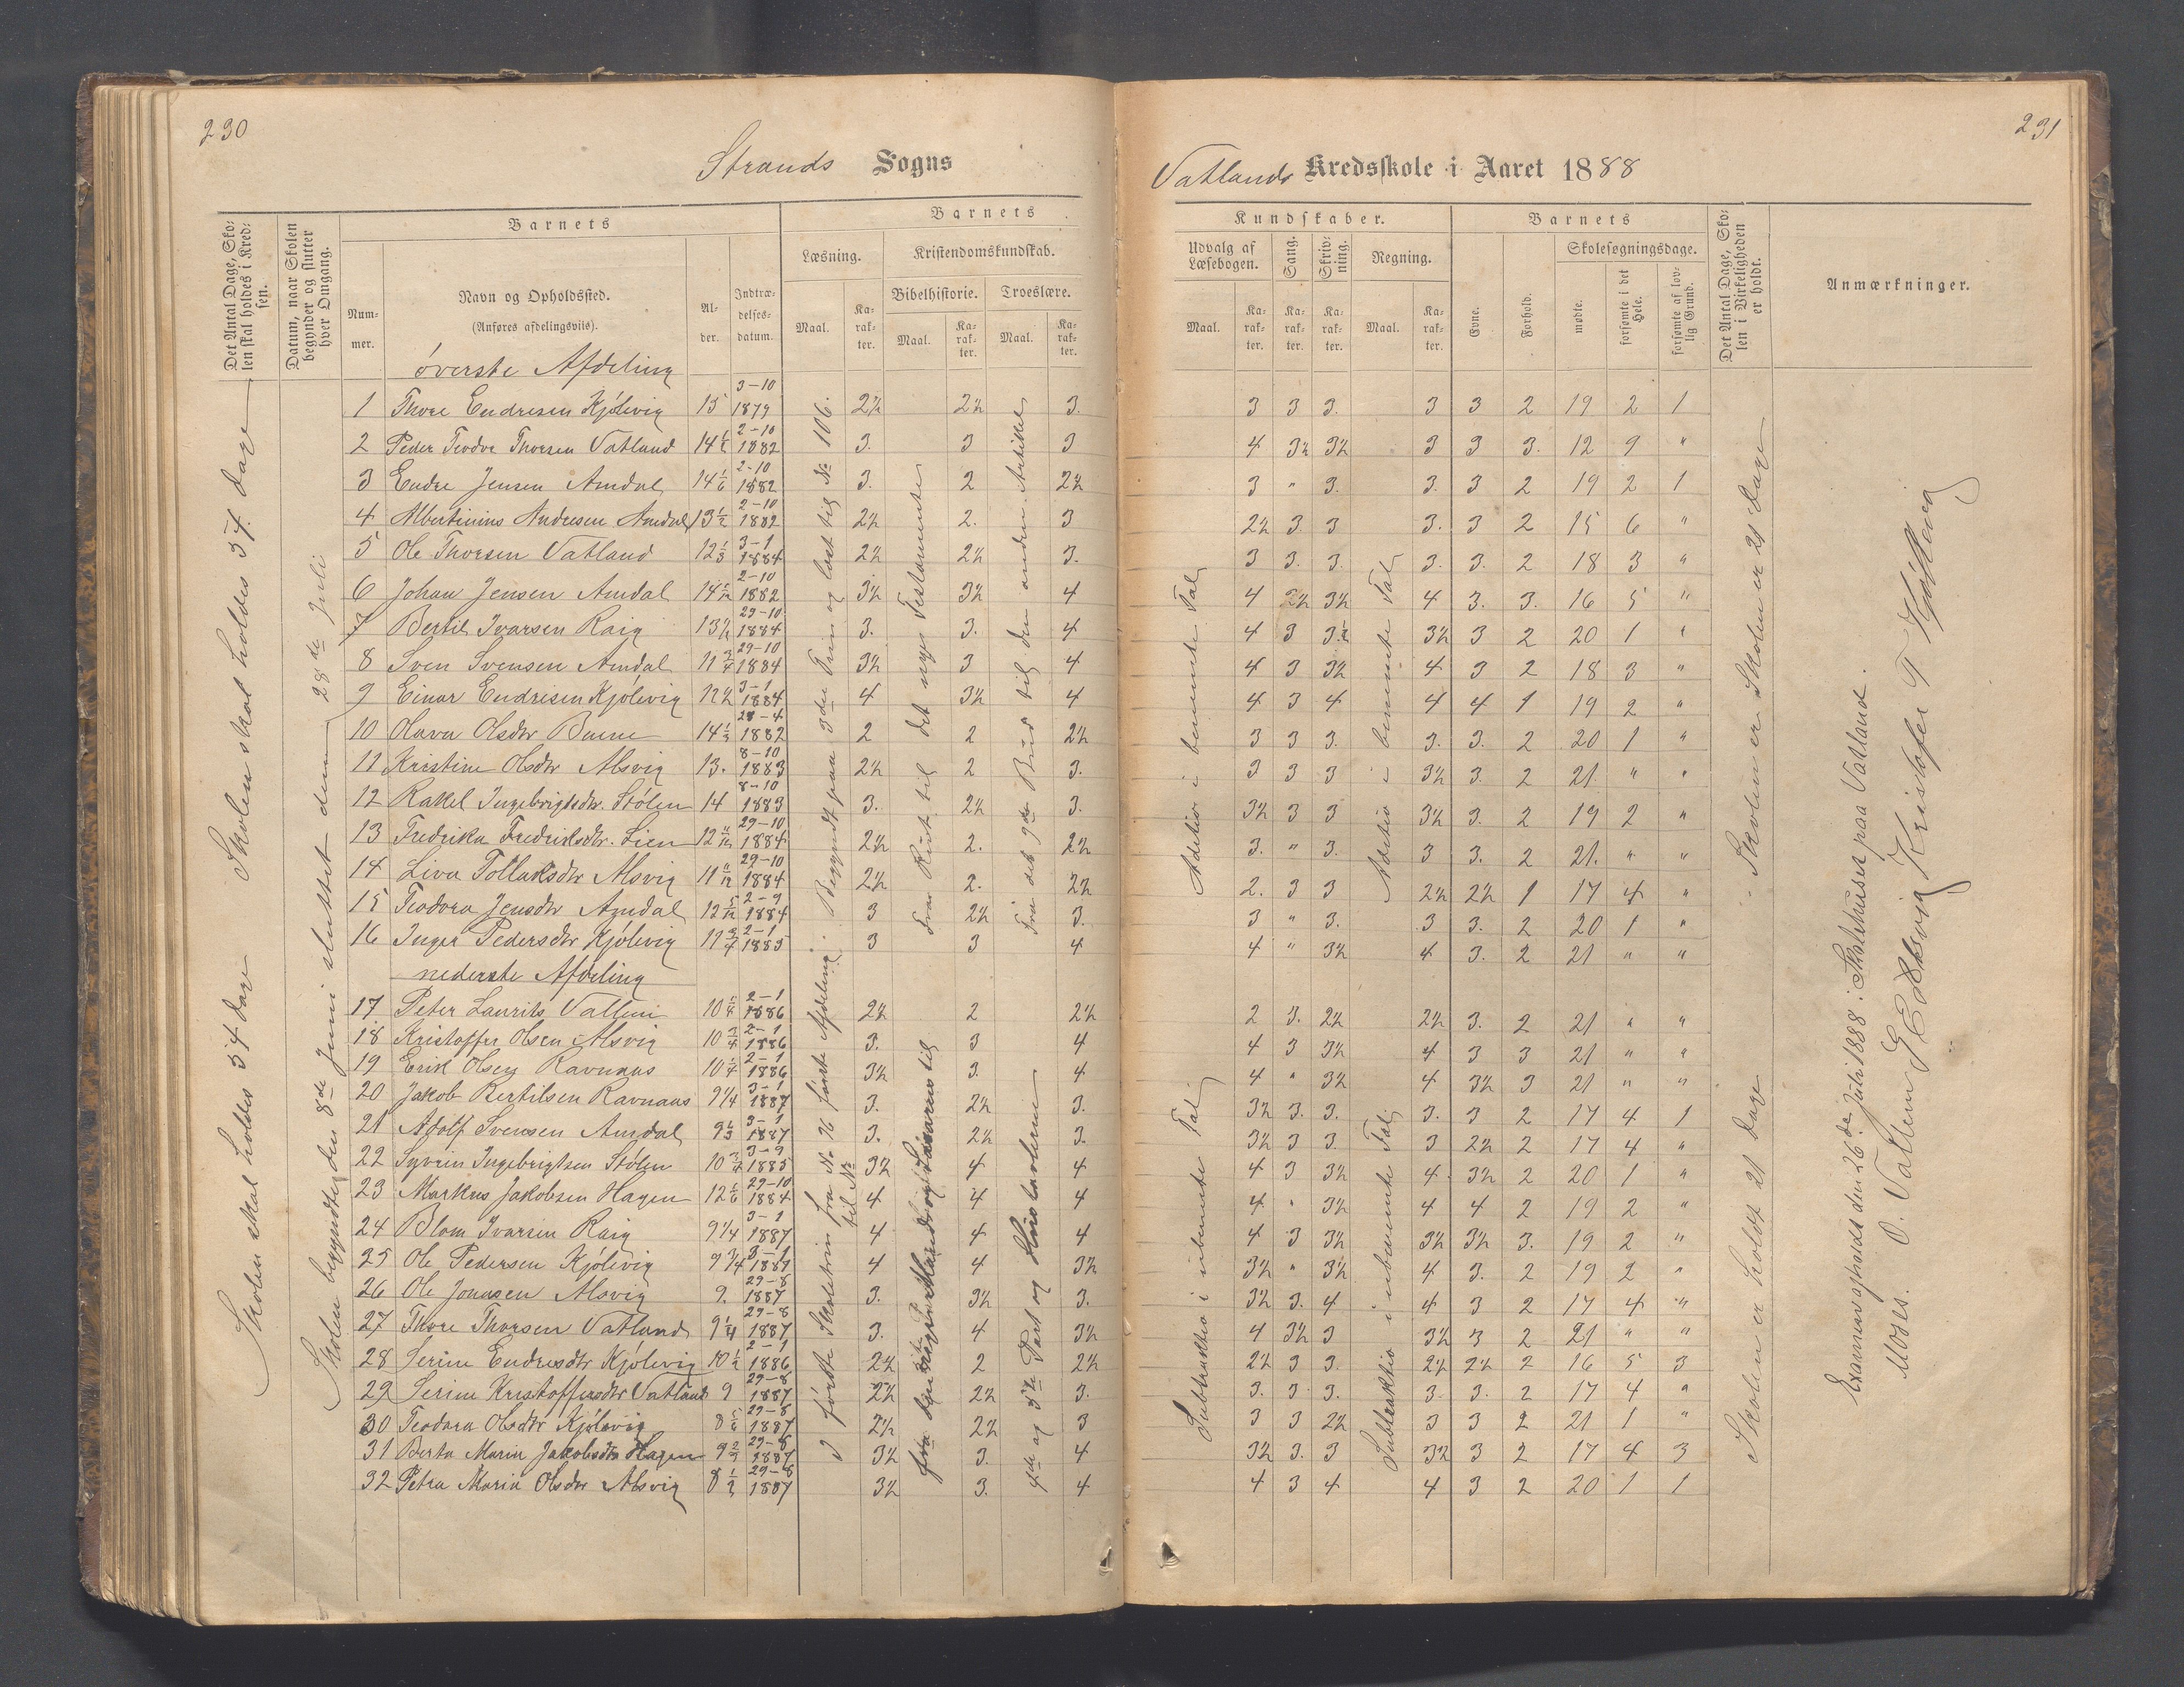 230
Strands Sogns
Det Antal Dage, Sko-
len skal holdes i Kred-
sen.
Datum, naar Skolen
begynder og slutter
hver Omgang.
Barnets
Num-
mer.
Navn og Opholdssted.
(Anføres afdelingsviis).
Al-
der.
Indtræ-
delses-
datum.
Barnets
Læsning.
Kristendomskundskab.
Bibelhistorie.
Troeslære.
Maal.
Ka-
rak-
ter.
Maal.
Ka-
rak-
ter.
Maal.
Ka-
rak-
ter.
Skolen skal holdes 54 Dage
Skolen skal holdes 54. Dage
Skolen begyndte den 8de Juni sluttet den 28de Juli
øverste Afdeling
1 Thore Endresen Kjølevig 15 3-10 1879 2½ 2½ 3.
2 Peder Teodor Thorsen Vatland 14½ 2-10 1882 3. 3 3
3 Endre Jensen Amdal 14 1/6 2-10 1882 3. 2 2½
4 Albertinius Andresen Amdal 13½ 2-10 1882 2½ 2. 3
5 Ole Thorsen Vatland 12⅓ 3-1 1884 2½ 2½ 3.
6 Johan Jensen Amdal 2-10 1882 3½ 3½ 4
7 Bertil Ivarsen Raig 13½ 29-10 1884 3. 3. 4
8 Sven Svensen Amdal 11¾ 29-10 1884 3½ 3 4
9 Einar Endresen Kjølevig 12½ 3-1 1884 4 3½ 4
10 Olava Olsdtr 14⅓ 28-4 1882 2 2 2½
11 Kristine Olsdtr Alsvig 13. 8-10 1883 2½ 2 3.
12 Rakel Ingebrigtsdtr. Stølen 14 8-10 1883 3. 2½ 3.
13 Fredrika Fredriksdtr. Lien 29-10 1884 2½ 2. 2½
14 Liva Tollaksdtr Alsvig 29-10 1884 2½ 2. 2½
15 Teodora Jensdtr Amdal 2-9 1884 3 2½ 3.
16 Inger Pedersdtr Kjølevig 11¾ 2-1 1885 3 3 4
nederste Afdeling
17 Peter Laurits Valheim 10¼ 2-1 1886 2½ 2 2½
18 Kristoffer Olsen Alsvig 10¾ 2-1 1886 3. 3 4
19 Erik Olsen Ravnaas 10¼ 2-1 1886 3½ 3. 4
20 Jakob Bertilsen Ravnaas 9¼ 3-1 1887 3. 2½ 3.
21 Adolf Svensen Amdal 9⅓ 3-1 1887 3. 2½ 3.
22 Syvrin Ingebrigtsen Stølen 10¾ 3-9 1885 3½ 4 4
23 Markus Jakobsen Hagen 12 1/6 29-10 1884 4 4 4
24 Blom Ivarsen Raig 9¼ 3-1 1887 4 4 4
25 Ole Pedersen Kjølevig 9¼ 3-1 1887 4 4 3½
26 Ole Jonasen Alsvig 9. 29-8 1887 3. 3½ 3.
27 Thore Thorsen Vatland 9¼ 29-8 1887 3. 4 3½
28 Serine Endresdtr Kjølevig 10½ 2-1 1886 2½ 2 2½
29 Serine Kristoffersdtr Vatland 9 29-8 1887 2½ 2½ 3.
30 Teodora Olsdtr Kjølevig 8 5/6 29-8 1887 2½ 2½ 3
31 Berta Maria Jakobsdtr Hagen 9⅔ 29-8 1887 3½ 3. 4
32 Petra Maria Olsdtr Alsvig 8½ 29-8 1887 3½ 3. 4
Begyndt paa 3die Trin og læst til № 106.
Fra Rut til det nye Testamente
Fra det 9de Bud til den anden Artikel
I første Skoletrin fra № 76 første Afdeling til №
4de og 5te Part og Huustavlerne
231
Vatlands Kredsskole i Aaret 1888
Kundskaber.
Udvalg af
Læsebogen.
Sang.
Skriv-
ning.
Regning.
Maal.
Ka-
rak-
ter.
Ka-
rak-
ter.
Ka-
rak-
ter.
Maal.
Ka-
rak-
ter.
Barnets
Evne.
Forhold.
Skolesøgningsdage.
mødte.
forsømte i det
Hele.
forsømte af lov-
lig Grund.
Det Antal Dage, Sko-
len i Virkeligheden
er holdt.
Anmærkninger.
3 3 3. 3 3 2 19 2 1
4 3½ 3½ 3 3 3. 12 9 "
3 " 3. 3. 3 2 19 2 1
2½ 3. 3 3. 3 2 15 6 "
3 3. 3. 3. 3. 2 18 3 "
4 2½ 3½ 4 3. 3. 16 5 "
4 3 3½ 3½ 3 2 20 1 "
4 3 3½ 4 3 2 18 3 "
4 3 4 4 4 1 19 2 "
3 3 3. 3. 3. 2 20 1 "
3 3 3 3½ 3. 2 21 " "
3½ 3 3 3½ 3. 2 19 2 "
3. " 3. 3 3. 2 21. " "
2. 3 3 2½ 2½ 1 17 4 "
3 " 3. 3 3. 2 20 1 "
4 " 3½ 4 3. 2 21 " "
2 3. 2½ 2½ 3. 2 21 " "
4 3 3½ 4 3 3 21 " "
4 " 3½ 4 3½ 3 21 " "
3½ 3. 3. 3. 3 2 17 4 1
3½ 3 3. 3 2½ 2 17 4 "
4 3 3½ 4 3½ 2 20 1 "
4 " 3½ 4 4 2 19 2 "
4 3 3½ 3½ 3½ 3. 19 2 "
3½ " 3½ 4 3. 2 19 2 "
3½ 3. 4 4 3 2 17 4 "
4 3½ 3 3½ 3 2 21 " "
2½ 3 3. 2½ 2½ 2 16 5 3
3. 3. 3. 3. 3. 2 17 4 "
3 3 2½ 3 3 2 21 1 "
3½ 3. 3 3½ 3 2 17 4 3
4 3 4 4 3 2 20 1 1
Adition i benævnte Tal
Adition i benævnte Tal
Subtraktion i ubenævnte Tal
Subtraktion i ubenævnte Tal
Skolen er holdt 21 Dage
Skolen er Skolen er 21 Dage
Examen afholdt den 26de Juli 1888 i Skolehuset paa Vatland.
Moses. O. Valheim E Alsvig Kristofer T